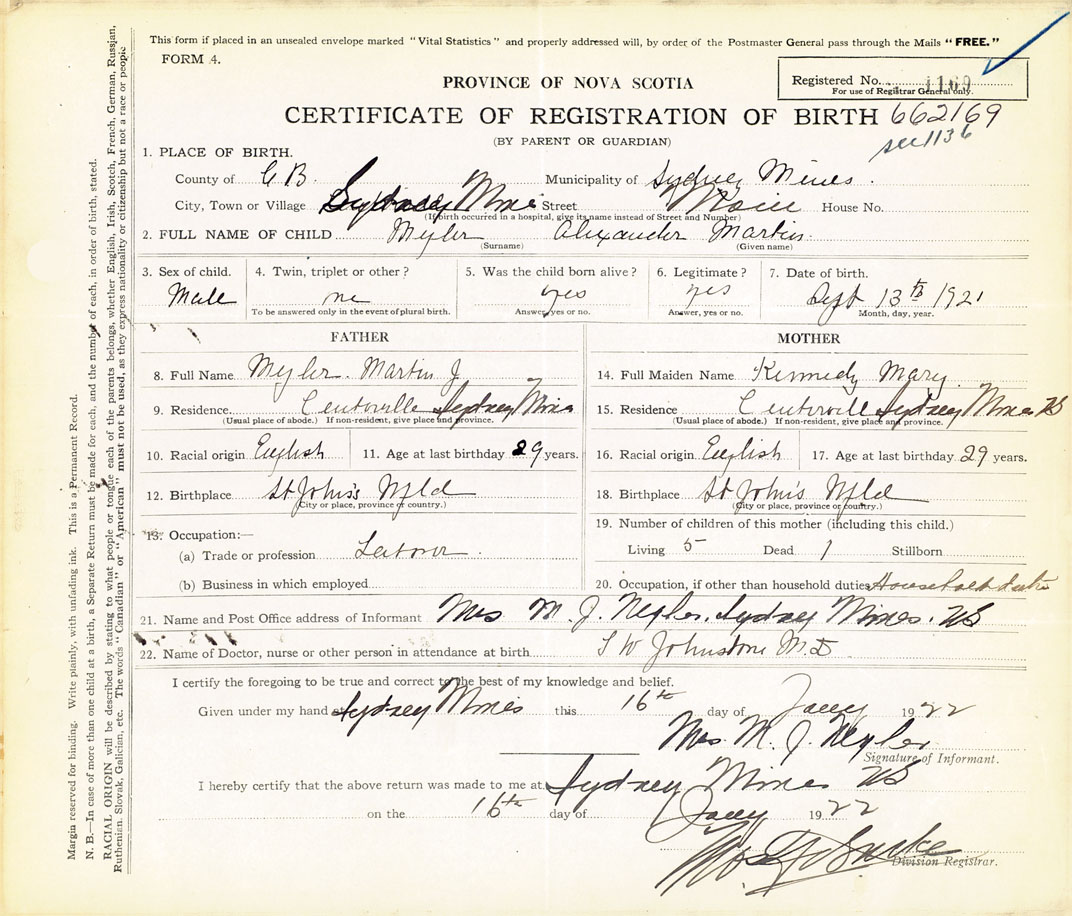 This form if placed in an unsealed envelope marked "Vital Statistics" and properly addressed will, by order of the Postmaster General pass through the Mails "FREE."
FORM 4.
Registered No.
For use of Registrar General only.
PROVINCE OF NOVA SCOTIA
CERTIFICATE OF REGISTRATION OF BIRTH 662169
(BY PARENT OR GUARDIAN) see 1136
1. PLACE OF BIRTH.
County of C B. Municipality of Sydney Mines.
City, Town or Village Sydney Mines Street Main House No.
(If birth occurred in a hospital, give its name instead of Street and Number)
2. FULL NAME OF CHILD Meyler Alexander Martin
(Surname) (Given name)
3. Sex of child. 4. Twin, triplet or other? 5. Was the child born alive? 6. Legitimate? 7. Date of birth.
Male no yes yes Sept 13th 1921
To be answered only in the event of plural birth. Answer, yes or no. Answer, yes or no. Month, day, year.
FATHER
8. Full Name Meyler. Martin J
9. Residence Centerville Sydney Mines
(Usual place of abode.) If non-resident, give place and province.
10. Racial origin English 11. Age at last birthday 29 years.
12. Birthplace St John's Nfld
(City or place, province or country.)
13. Occupation:—
(a) Trade or profession Laborer.
(b) Business in which employed
MOTHER
14. Full Maiden Name Kennedy Mary
15. Residence Centerville Sydney Mines NS
(Usual place of abode.) If non-resident, give place and province.
16. Racial origin English 17. Age at last birthday 29 years.
18. Birthplace St John's Nfld
(City or place, province or country.)
19. Number of children of this mother (including this child.)
Living 5 Dead 1 Stillborn
20. Occupation, if other than household duties Household duties
21. Name and Post Office address of Informant Mrs M. J. Meyler. Sydney Mines. NS
22. Name of Doctor, nurse or other person in attendance at birth Johnstone M.D
I certify the foregoing to be true and correct to the best of my knowledge and belief.
Given under my hand at Sydney Mines this 16th day of Jany 1922
Mrs. M. J. Meyler
Signature of Informant.
I hereby certify that the above return was made to me at Sydney Mines NS
on the 16th day of Jany 1922
Division Registrar.
Margin reserved for binding. Write plainly, with unfading ink. This is a Permanent Record.
N. B.—In case of more than one child at a birth, a Separate Return must be made for each, and the number of each, in order of birth, stated.
RACIAL ORIGIN will be described by stating to what people or tongue each of the parents belongs, whether English, Irish, Scotch, French, German, Russian,
Ruthenian, Slovak, Galician, etc. The words "Canadian" or "American" must not be used, as they express nationality or citizenship but not a race or people